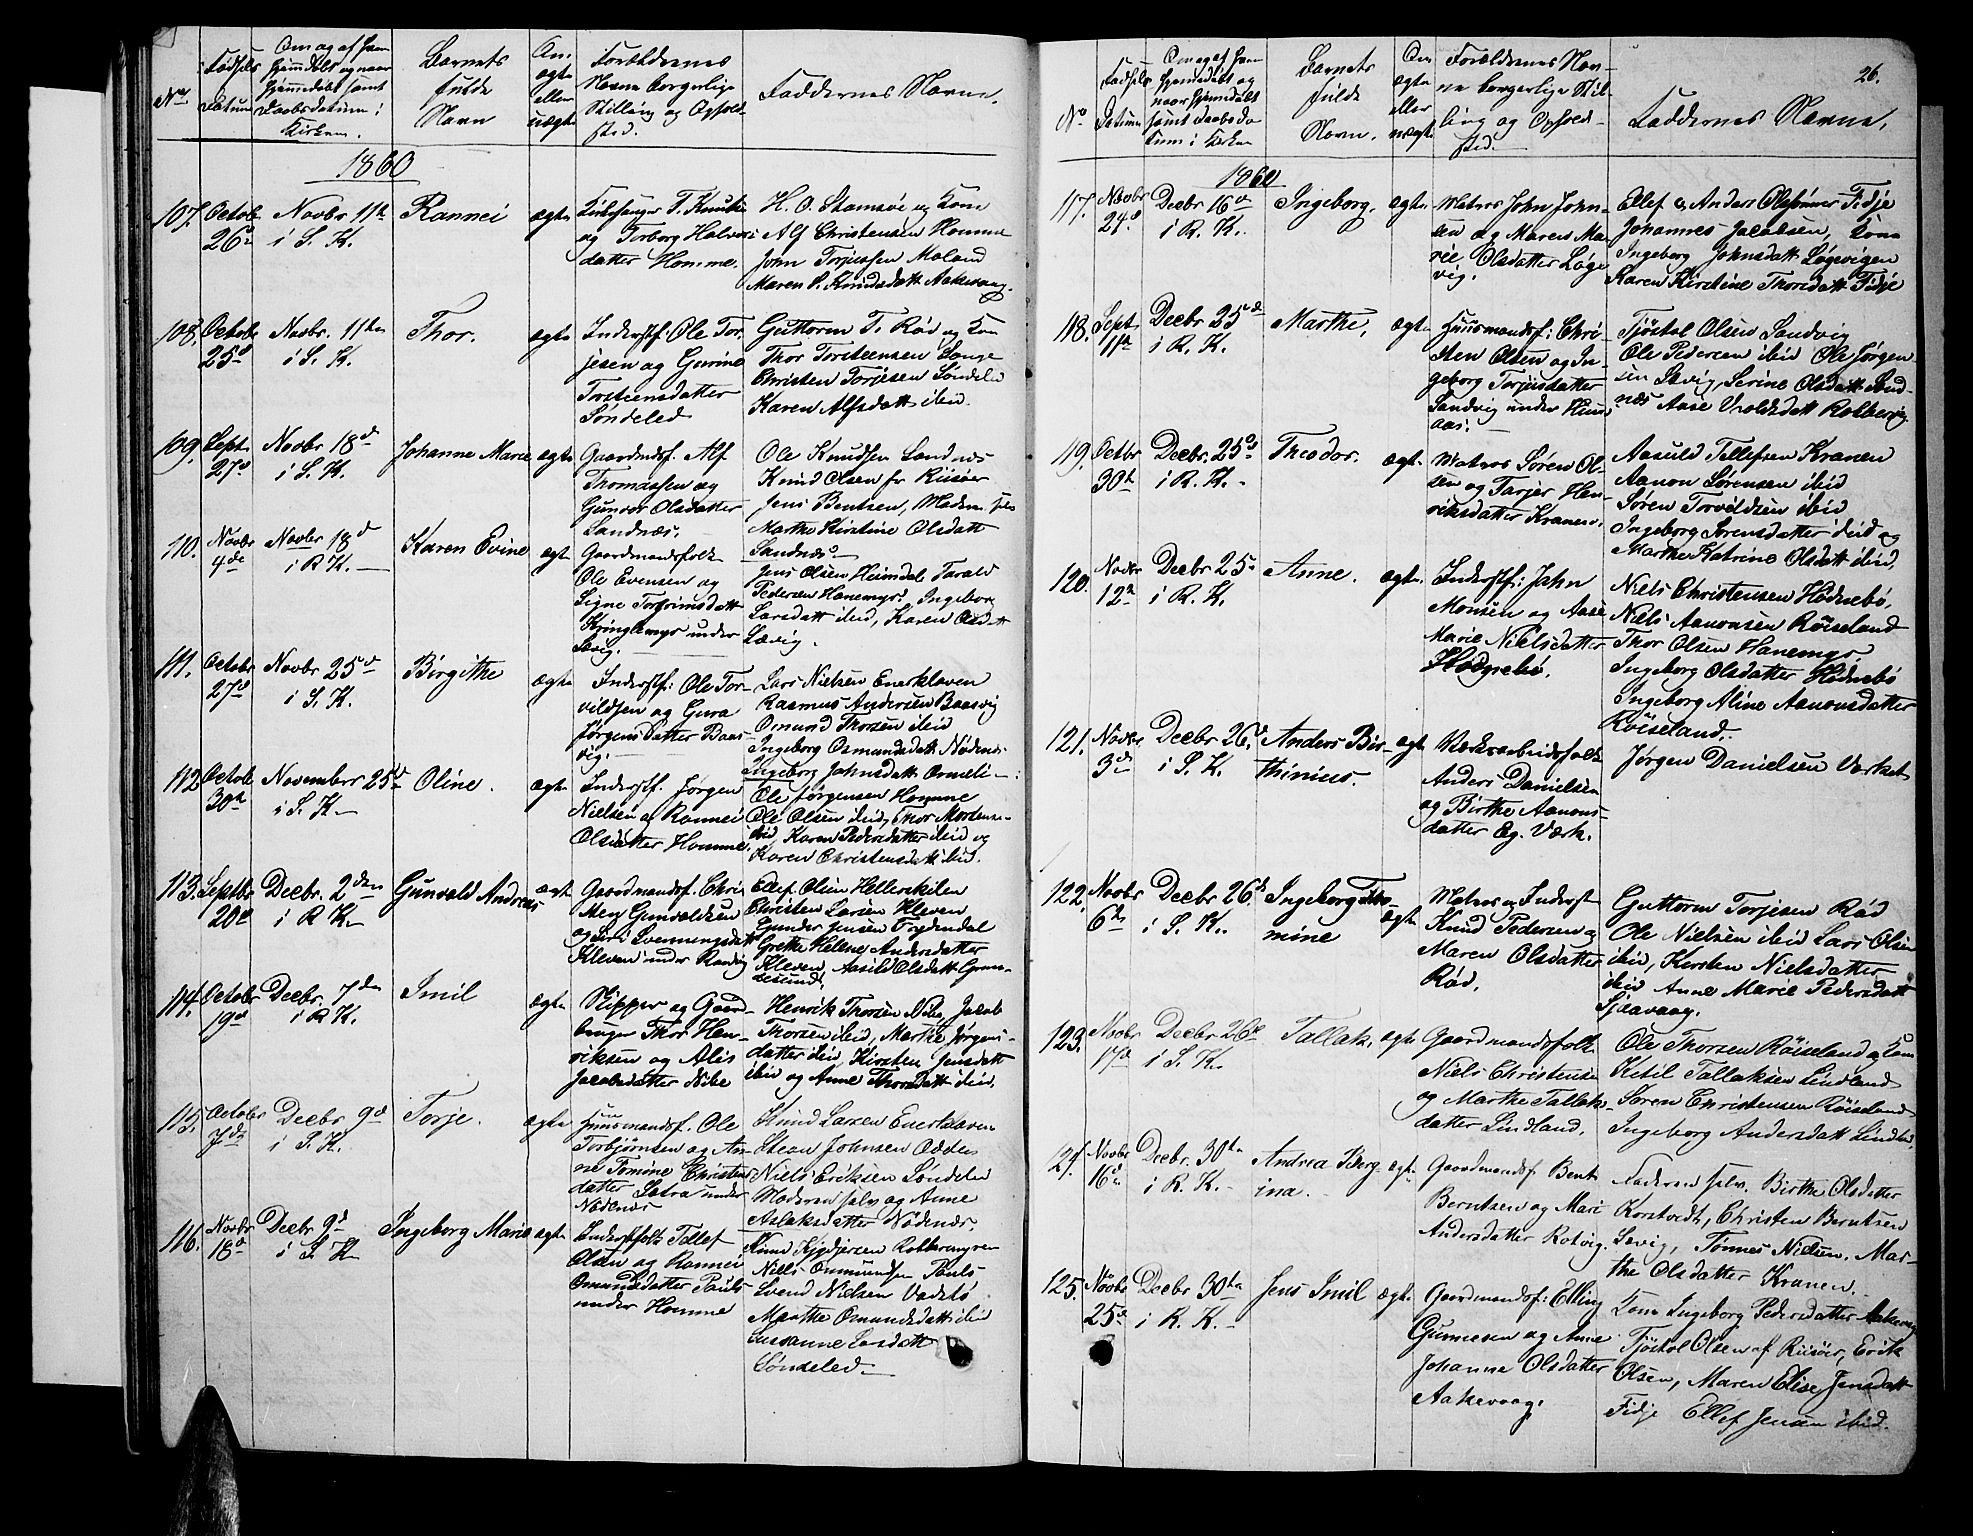 No
Fødsels
Datum
Om og af hvem
hjemdøbt og naar
hjemdøbt samt
Daabsdatum i
Kirken.
Barnets
fulde
Navn
Om
ægte
eller
uægte
Forældrenes
Navne borgerlige
Stilling og Opholds-
sted.
Faddernes Navne.
1860
107. Octob. 26d
Novbr 11te
i S. K.
Rannei
ægte
Kirkesanger T. Knuts
og Torborg Halvors
datter Homme.
H. O. Stamsøe og Kone
Alf Christensen Homme
John Torjussen Moland
Maren P. Knudsdatt Aakevaag.
108. Octob. 25d
Novbr. 11ten
i S. K.
Thor.
ægte
Inderstf: Ole Tor-
jesen og Gurine
Torsteensdatter
Søndeled
Guttorm T. Rød og Kone
Thor Torsteensen Lange
Christen Torjesen Søndeled
Karen Alfsdatt ibid.
109. Septr. 27d
Novbr 18d
i S. K.
Johanne Marie
ægte
Gaardmdsf. Alf
Thomassen og
Gunvor Olsdatter
Sandnæs.
Ole Knudsen Sandnæs
Knud Olsen fr Riisøer
Jens Bentsen, Moderen selv
Marthe Kirstine Olsdatt
Sandnæs
110. Novbr 4de
Novbr 18d
i R K.
Karen Evine
ægt
Gaardmandsfolk
Ole Evensen og
Signe Torgrimsdatt
Kringlemyr under
Sævig.
Jens Olsen Heimdal Tarald
Pedersen Hanemyr, Ingeborg
Larsdatt ibid, Karen Olsdatt
Sævig.
111. Octobr 27d
Novbr 25d
i S. K.
Birgithe
ægte
Inderstf: Ole Tor-
vildsen og Gura
Jørgensdatter Baas-
vig.
Lars Nielsen Enerkleven
Rasmus Andersen Baasvig
Omund Thorsen ibid
Ingeborg Osmundsdatt Nødenes-
Ingeborg Johnsdatt Ormeli
112 Octob. 30te
November 25d
i S. K
Oline.
ægte
Inderstf. Jørgen
Nielsen og Rannei
Olsdatter Homme.
Ole Jørgensen Homme
Ole Olsen ibid, Thor Mortensen
ibid, Karen Pedersdatter ibid og
Karen Christensdatt ibid.
113. Septbr 20d
Decbr. 2den
i R K.
Gunvald Andreas
ægt
Gaardmandsf. Chri
sten Gunvaldsen
og Siri Svenningsdatt
Kleven under Ravnvig
Ellef Olsen Hellerskilen
Christen Larsen Kleven
Gunder Jensen Frydendal
Grethe Helene Andersdatter
Kleven, Aasild Olsdatt Grønn-
114. Octobr 19d
Decbr. 7de
i R K.
Imil
ægte
Skipper og Gaard
bruger Thor Hen-
riksen og Alis
Jacobsdatter Nibe
Henrik Thorsen Nibe, Jacob
Thorsen ibid, Marthe Jørgens-
datter ibid, Kirsten Jensdatt
ibid og Anne Thorsdatt ibid.
115. Octobr 7de
Decbr. 9d
i S. K.
Torje.
ægte
Huusmandsf. Ole
Torbjørnsen og An-
ne Tomine Christens
datter Satra under
Nødenæs
Knud Larsen Enerkleven
Stean Johnsen Odden
Niels Eriksen Søndeled
Moderen selv og Anne
Aslaksdatter Nødenæs.
116. Novbr 18d
Decbr 9d
i S. K
Ingeborg Marie
ægte
Inderstfolk Tellef
Olsen og Rannei
Omundsdatter Pauls
under Homme
Knud Kjydjersen Robbersmyren
Niels Ommundsen Pauls
Svend Nielsen Vadstø
Marthe Omundsdatt ibid
Susanne Larsdatt
Søndeled
26.
No
Fødsels
Datum
Om og af hvem
hjemdøbt og
naar hjemdøbt
samt Daabsda
tum i Kirken
Barnets
fulde
Navn.
Om
ægte
eller
uægte
Forældrenes Nav-
ne borgerlige Stil-
ling og Ophold-
sted.
Faddernes Navne.
1860
117. Novbr 24d
Decbr 16d
i R. K.
Ingeborg.
ægte
Matros John John-
sen og Maren Ma
rie Olsdatter Løge
vig.
Ellef og Anders Olsønner Fidje
Johannes Jacobsen, Kone
Ingeborg Johnsdatt Løgevigen
Karen Kirstine Thorsdatt Fidje
118. Septr 11te
Decbr 25de
i R. K.
Marthe,
ægte
Huusmandsf: Chri-
sten Olsen og In-
geborg Torjusdatter
Sandvig under Huus-
aas.
Tjøstol Olsen Sandvig
Ole Pedersen ibid Ole Jørgen-
sen Sævig, Serine Olsdatt Sand
næs Aase Vroldsdatt Robbersvig
119. Octbr 30te
Decbr. 25de
i R. K.
Theodor.
ægt.
Matros Søren Ol-
sen og Tarjer Hen-
riksdatter Kranen.
Aasuld Tellefsen Kranen
Aanon Sørensen ibid
Søren Torvildsen ibid
Ingeborg Sørensdatter ibid og
Marthe Katrine Olsdatt ibid.
120. Novbr 12te
Decbr 25d
i R. K.
Anne.
ægt.
Inderstf: Jahn
Monsen og Aase
Marie Nielsdatter
Hødnebø.
Niels Christensen Hødnebø,
Niels Aanonsen Røiseland
Thor Olsen Hanemyr
Ingeborg Olsdatter Hødnebø
Ingeborg Aline Aanonsdatter
Røiseland.
121. Novbr 3de
Decbr 26d
i S. K.
Anders Bir-
thinius.
ægt
Værksarbeidsfolk
Anders Danielsen
og Birthe Aanons-
datter Eg. Værk.
Jørgen Danielsen Værket
122. Novbr 6te
Decbr 26d
i S. K.
Ingeborg Tho-
mine
ægte
Matros og Inderst
Knud Pedersen og
Maren Olsdatter
Rød.
Guttorm Torjesen Rød
Ole Nielsen ibid Lars Olsen
ibid, Kirsten Nielsdatter
ibid Anne Marie Pedersdatt
Sjaavaag.
123. Novbr 17de
Decbr 26d
i S. K.
Tallak.
ægte
Gaardmandsfolk
Niels Christensen
og Marthe Tallak-
datter Lindland.
Ole Thorsen Røiseland og Kone
Ketil Tallaksen Lindland
Søren Christensen Røiseland
Ingeborg Andersdatt Lindland.
124. Novbr 16d
Decbr. 30te
i R. K.
Andrea Berg-
ina.
ægt.
Gaardmandsf Bent
Berntsen og Mari
Andersdatter Rotvig.
Faderen selv. Birthe Olsdatter
Korstvedt, Christen Berntsen
Sævig, Tønnes Nielsen. Mar-
the Olsdatter Kranen.
125. Novbr 25d
Decbr 30te
i R. K.
Jens Imil
ægte
Gaardmandsf: Elling
Gunnesen og Anne
Johanne Olsdatter
Aakevaag.
Kone Ingeborg Pedersdatter Aakevaag
Tjøstol Olsen af Riisøer, Erik
Olsen, Maren Elise Jensdatt
Fidje Ellef Jensen ibid.